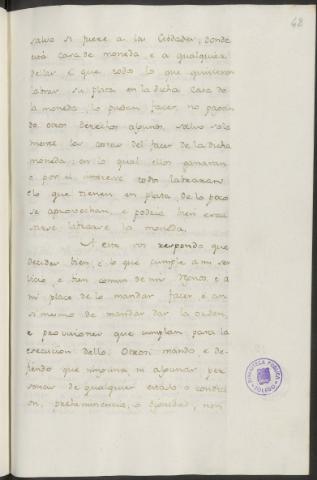 42
salvo si fuere a las Ciddades, donde
está casa de moneda, e a qualquiera
delas, e que todo lo que quisieren
labrar su plata en la dicha Casa de
la moneda, lo puedan facer, no pagan
do otros derechos algunos, salvo sola
mente las costas del facer de la dicha
moneda: en lo qual ellos ganaran
e por el interese todos labraran
e lo que tienen en plata, de lo poco
se aprovechan, e podria bien
labrarse la moneda.
A esto vos respondo que
decides bien, e lo que cumple a mi ser
vicio, e bien comun de mis Regnos, e a
mi place de lo mandar facer, e an
si mesmo de mandar dar la orden,
e provisiones que cumplan para la
execucion dello. Otrosi mando, e de-
fiendo que ninguna, ni algunas per
sonas de qualquier estado o condici
on, preheminencia, o dignidad, non
BIBLIOTECA PÚBLICA
TOLEDO